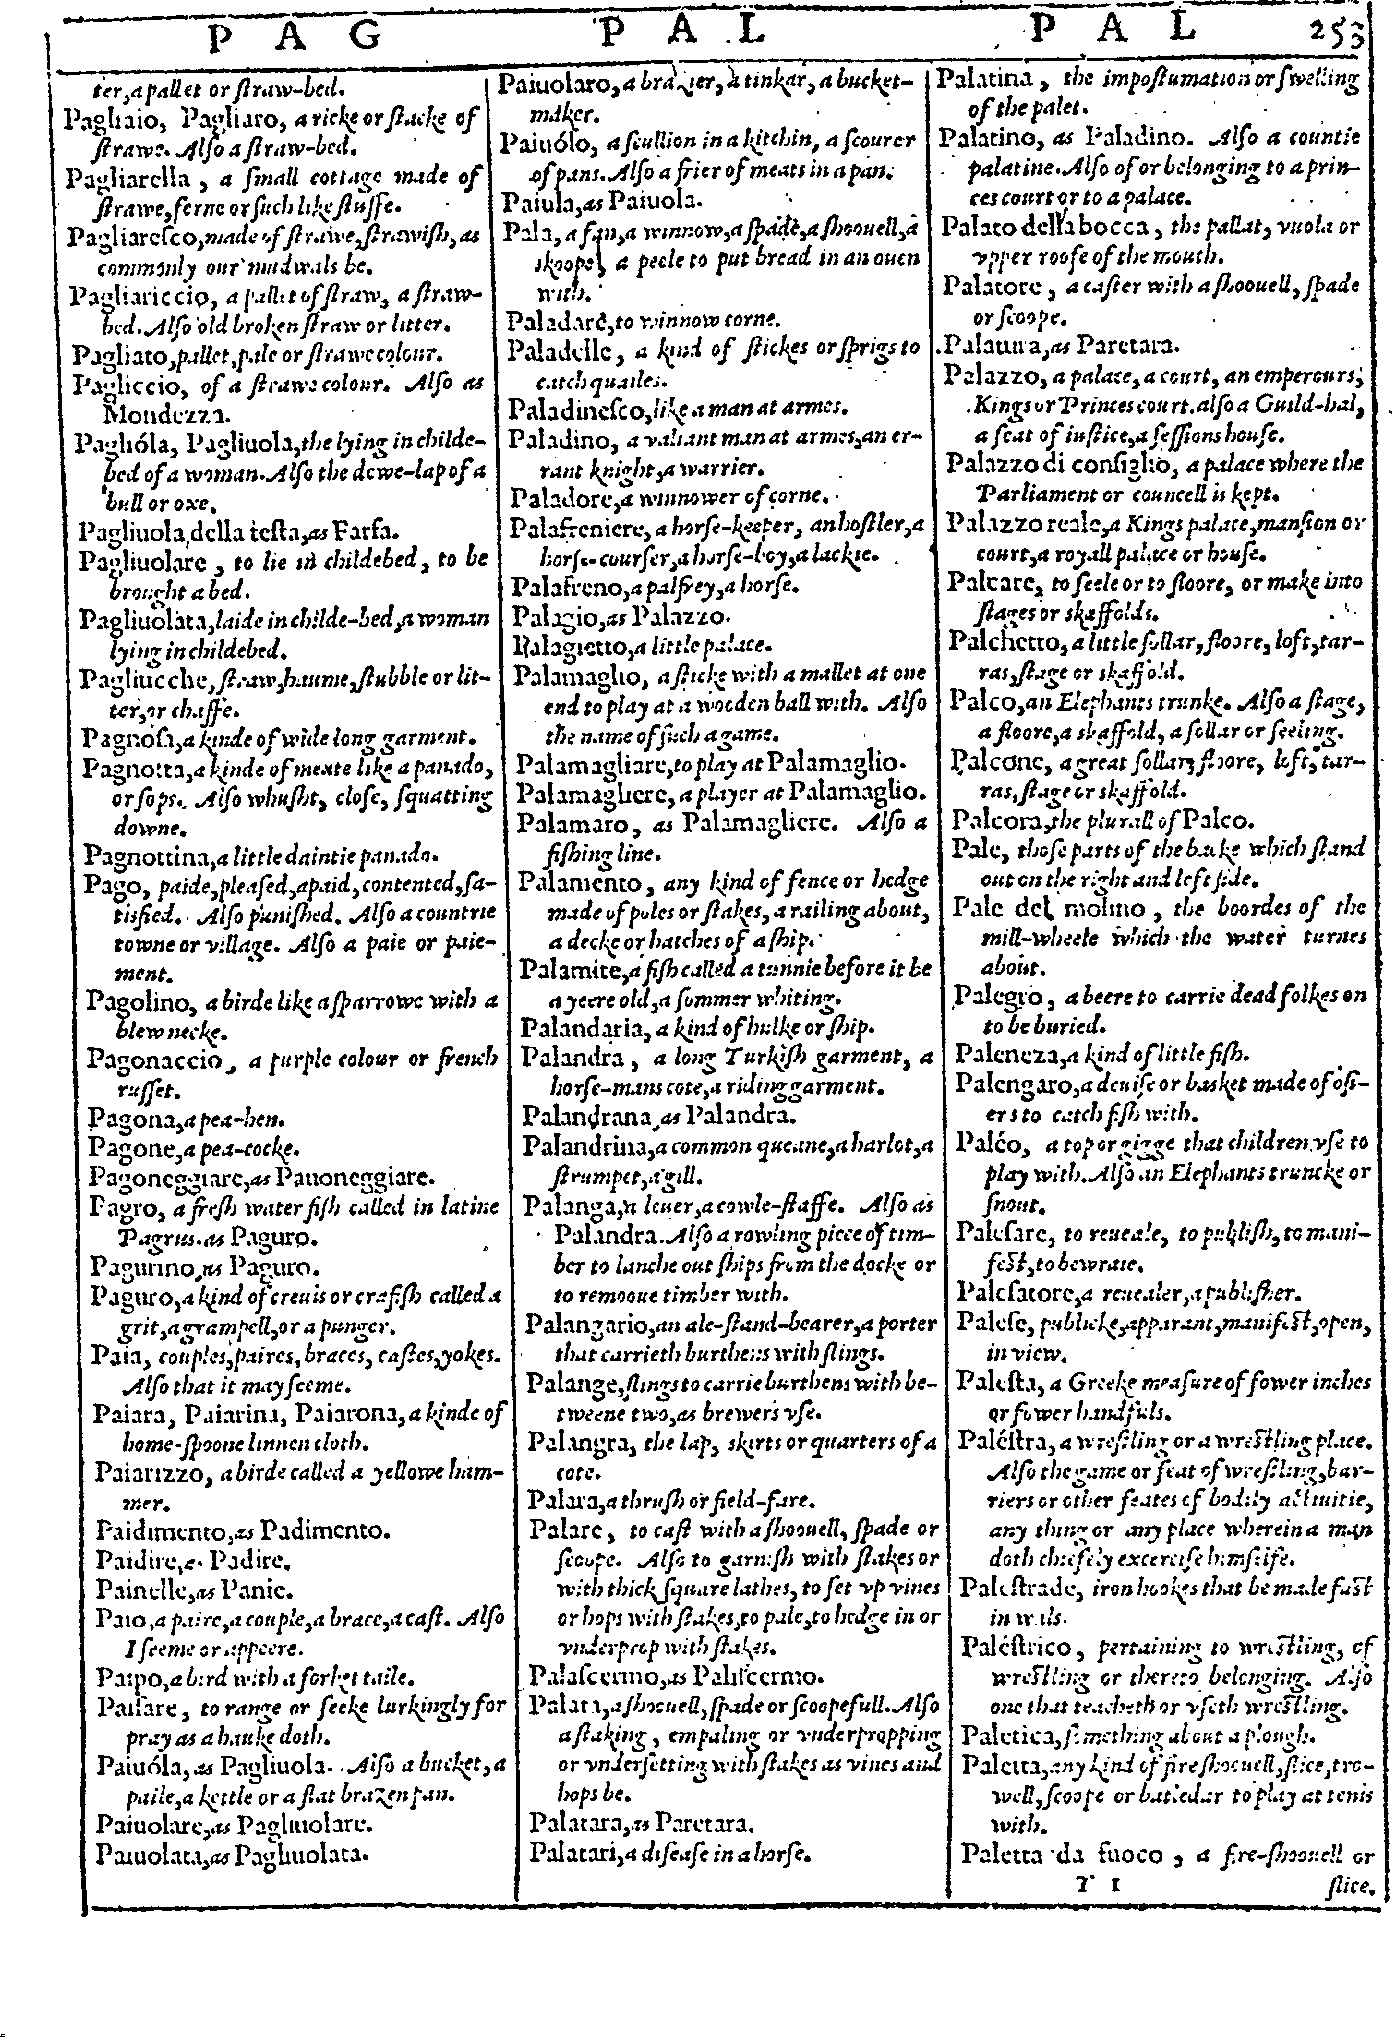 P A G P A L P A L 253
ter, a pallet or ſtraw-bed.
Pagliaio, Pagliaro, a ricke or ſtacke of
ſtrawe. Alſo a ſtraw-bed.
Pagliarella, a ſmall cottage made of
ſtrawe, ferne or ſuch like ſtuffe.
Pagliareſco, made of ſtrawe, ſtrawiſh, as
commonly our mudwals be.
Pagliariccio, a pallet of ſtraw, a ſtraw-
bed. Alſo old broken ſtraw or litter.
Pagliato, pallet, pale or ſtrawe colour.
Pagliccio, of a ſtrawe colour. Alſo as
Mondezza.
Paglióla, Pagliuola, the lying in childe-
bed of a woman. Alſo the dewe-lap of a
bull or oxe.
Pagliuola della teſta, as Farfa.
Pagliuolare, to lie in childebed, to be
brought a bed.
Pagliuolata, laide in childe-bed, a woman
lying in childebed.
Pagliucche, ſtraw, haume, ſtubble or lit-
ter, or chaffe.
Pagnoſa, a kinde of wide long garment.
Pagnotta, a kinde of meate like a panado,
or ſops. Alſo whuſht, cloſe, ſquatting
downe.
Pagnottina, a little daintie panado.
Pago, paide, pleaſed, apaid, contented, ſa-
tisfied. Alſo puniſhed. Alſo a countrie
towne or village. Alſo a paie or paie-
ment.
Pagolino, a birde like a ſparrowe with a
blew necke.
Pagonaccio, a purple colour or french
ruſſet.
Pagona, a pea-hen.
Pagone, a pea-cocke.
Pagoneggiare, as Pauoneggiare.
Pagro, a freſh water fiſh called in latine
Pagrus. as Paguro.
Pagurino, as Paguro.
Paguro, a kind of creuis or crafiſh called a
grit, a grampell, or a punger.
Paia, couples, paires, braces, caſtes, yokes.
Alſo that it may ſeeme.
Paiara, Paiarina, Paiarona, a kinde of
home-ſpoone linnen cloth.
Paiarizzo, a birde called a yellowe ham-
mer.
Paidimento, as Padimento.
Paidire, as Padire.
Painelle, as Panie.
Paio, a paire, a couple, a brace, a caſt. Alſo
I ſeeme or appeere.
Paipo, a bird with a forket taile.
Paiſare, to range or ſeeke lurkingly for
pray as a hauke doth.
Paiuóla, as Pagliuola. Alſo a bucket, a
paile, a kettle or a flat brazen pan.
Paiuolare, as Pagliuolare.
Paiuolata, as Pagliuolata.
Paiuolaro, a brazier, a tinkar, a bucket-
maker.
Paiuólo, a ſcullion in a kitchin, a ſcourer
of pans. Alſo a frier of meats in a pan.
Paiula, as Paiuola.
Pala, a fan, a winnow, a ſpade, a ſhoouell, a
skoope, a peele to put bread in an ouen
with.
Paladare, to winnow corne.
Paladelle, a kind of ſtickes or ſprigs to
catch quailes.
Paladineſco, like a man at armes.
Paladino, a valiant man at armes, an er-
rant knight, a warrier.
Paladore, a winnower of corne.
Palafreniere, a horſe-keeper, an hoſtler, a
horſe-courſer, a horſe-boy, a lackie.
Palafreno, a palfrey, a horſe.
Palagio, as Palazzo.
Palagietto, a little palace.
Palamaglio, a ſticke with a mallet at one
end to play at a wooden ball with. Alſo
the name of ſuch a game.
Palamagliare, to play at Palamaglio.
Palamagliere, a player at Palamaglio.
Palamaro, as Palamagliere. Alſo a
fiſhing line.
Palamento, any kind of fence or hedge
made of poles or ſtakes, a railing about,
a decke or hatches of a ſhip.
Palamite, a fiſh called a tunnie before it be
a yeere old, a ſommer whiting.
Palandaria, a kind of hulke or ſhip.
Palandra, a long Turkiſh garment, a
horſe-mans cote, a riding garment.
Palandrana, as Palandra.
Palandrina, a common queane, a harlot, a
ſtrumpet, a gill.
Palanga, a leuer, a cowle-ſtaffe. Alſo as
Palandra. Alſo a rowling piece of tim-
ber to lanche out ſhips from the docke or
to remooue timber with.
Palangario, an ale-ſtand-bearer, a porter
that carrieth burthens with ſlings.
Palange, ſlings to carrie burthens with be-
tweene two, as brewers vſe.
Palangra, the lap, skirts or quarters of a
cote.
Palara, a thruſh or field-fare.
Palare, to caſt with a ſhoouell, ſpade or
ſcoope. Alſo to garniſh with ſtakes or
with thick ſquare lathes, to ſet vp vines
or hops with ſtakes, to pale, to hedge in or
vnderprop with ſtakes.
Palaſcermo, as Paliſcermo.
Palata, a ſhoouell, ſpade or ſcoopefull. Alſo
a ſtaking, empaling or vnderpropping
or vnderſetting with ſtakes as vines and
hops be.
Palatara, as Paretara.
Palatari, a diſeaſe in a horſe.
Palatina, the impoſtumation or ſwelling
of the palet.
Palatino, as Paladino. Alſo a countie
palatine. Alſo of or belonging to a prin-
ces court or to a palace.
Palato della bocca, the pallat, vuola or
vpper roofe of the mouth.
Palatore, a caſter with a ſhoouell, ſpade
or ſcoope.
Palatura, as Paretara.
Palazzo, a palace, a court, an emperours,
Kings or Princes court. alſo a Guild-hal,
a ſeat of iuſtice, a ſeſſions houſe.
Palazzo di conſiglio, a palace where the
Parliament or councell is kept.
Palazzo reale, a Kings palace, manſion or
court, a royall palace or houſe.
Palcare, to ſeele or to floore, or make into
ſtages or skaffolds.
Palchetto, a little ſollar, floore, loft, tar-
ras, ſtage or skaffold.
Palco, an Elephants trunke. Alſo a ſtage,
a floore, a skaffold, a ſollar or ſeeling.
Palcone, a great ſollar, floore, loft, tar-
ras, ſtage or skaffold.
Palcora, the plurall of Palco.
Pale, thoſe parts of the backe which ſtand
out on the right and left ſide.
Pale del molino, the boordes of the
mill-wheele which the water turnes
about.
Palegro, a beere to carrie dead folkes on
to be buried.
Paleneza, a kind of little fiſh.
Palengaro, a deuiſe or basket made of oſi-
ers to catch fiſh with.
Paléo, a top or gigge that children vſe to
play with. Alſo an Elephants truncke or
ſnout.
Paleſare, to reueale, to publiſh, to mani-
feſt, to bewraie.
Paleſatore, a reuealer, a publiſher.
Paleſe, publicke, apparant, manifeſt, open,
in view.
Paleſta, a Greeke meaſure of fower inches
or fower handfuls.
Paléſtra, a wreſtling or a wreſtling place.
Alſo the game or feat of wreſtling, bar-
riers or other feates of bodily actiuitie,
any thing or any place wherein a man
doth chiefely excerciſe himſelfe.
Paleſtrade, iron hookes that be made faſt
in wals.
Paléſtrico, pertaining to wreſtling, of
wreſtling or thereto belonging. Alſo
one that teacheth or vſeth wreſtling.
Paletica, ſomething about a plough.
Paletta, any kind of fire ſhoouell, ſlice, tro-
well, ſcoope or batledar to play at tenis
with.
Paletta da fuoco, a fire-ſhoouell or
Y 1 ſlice.